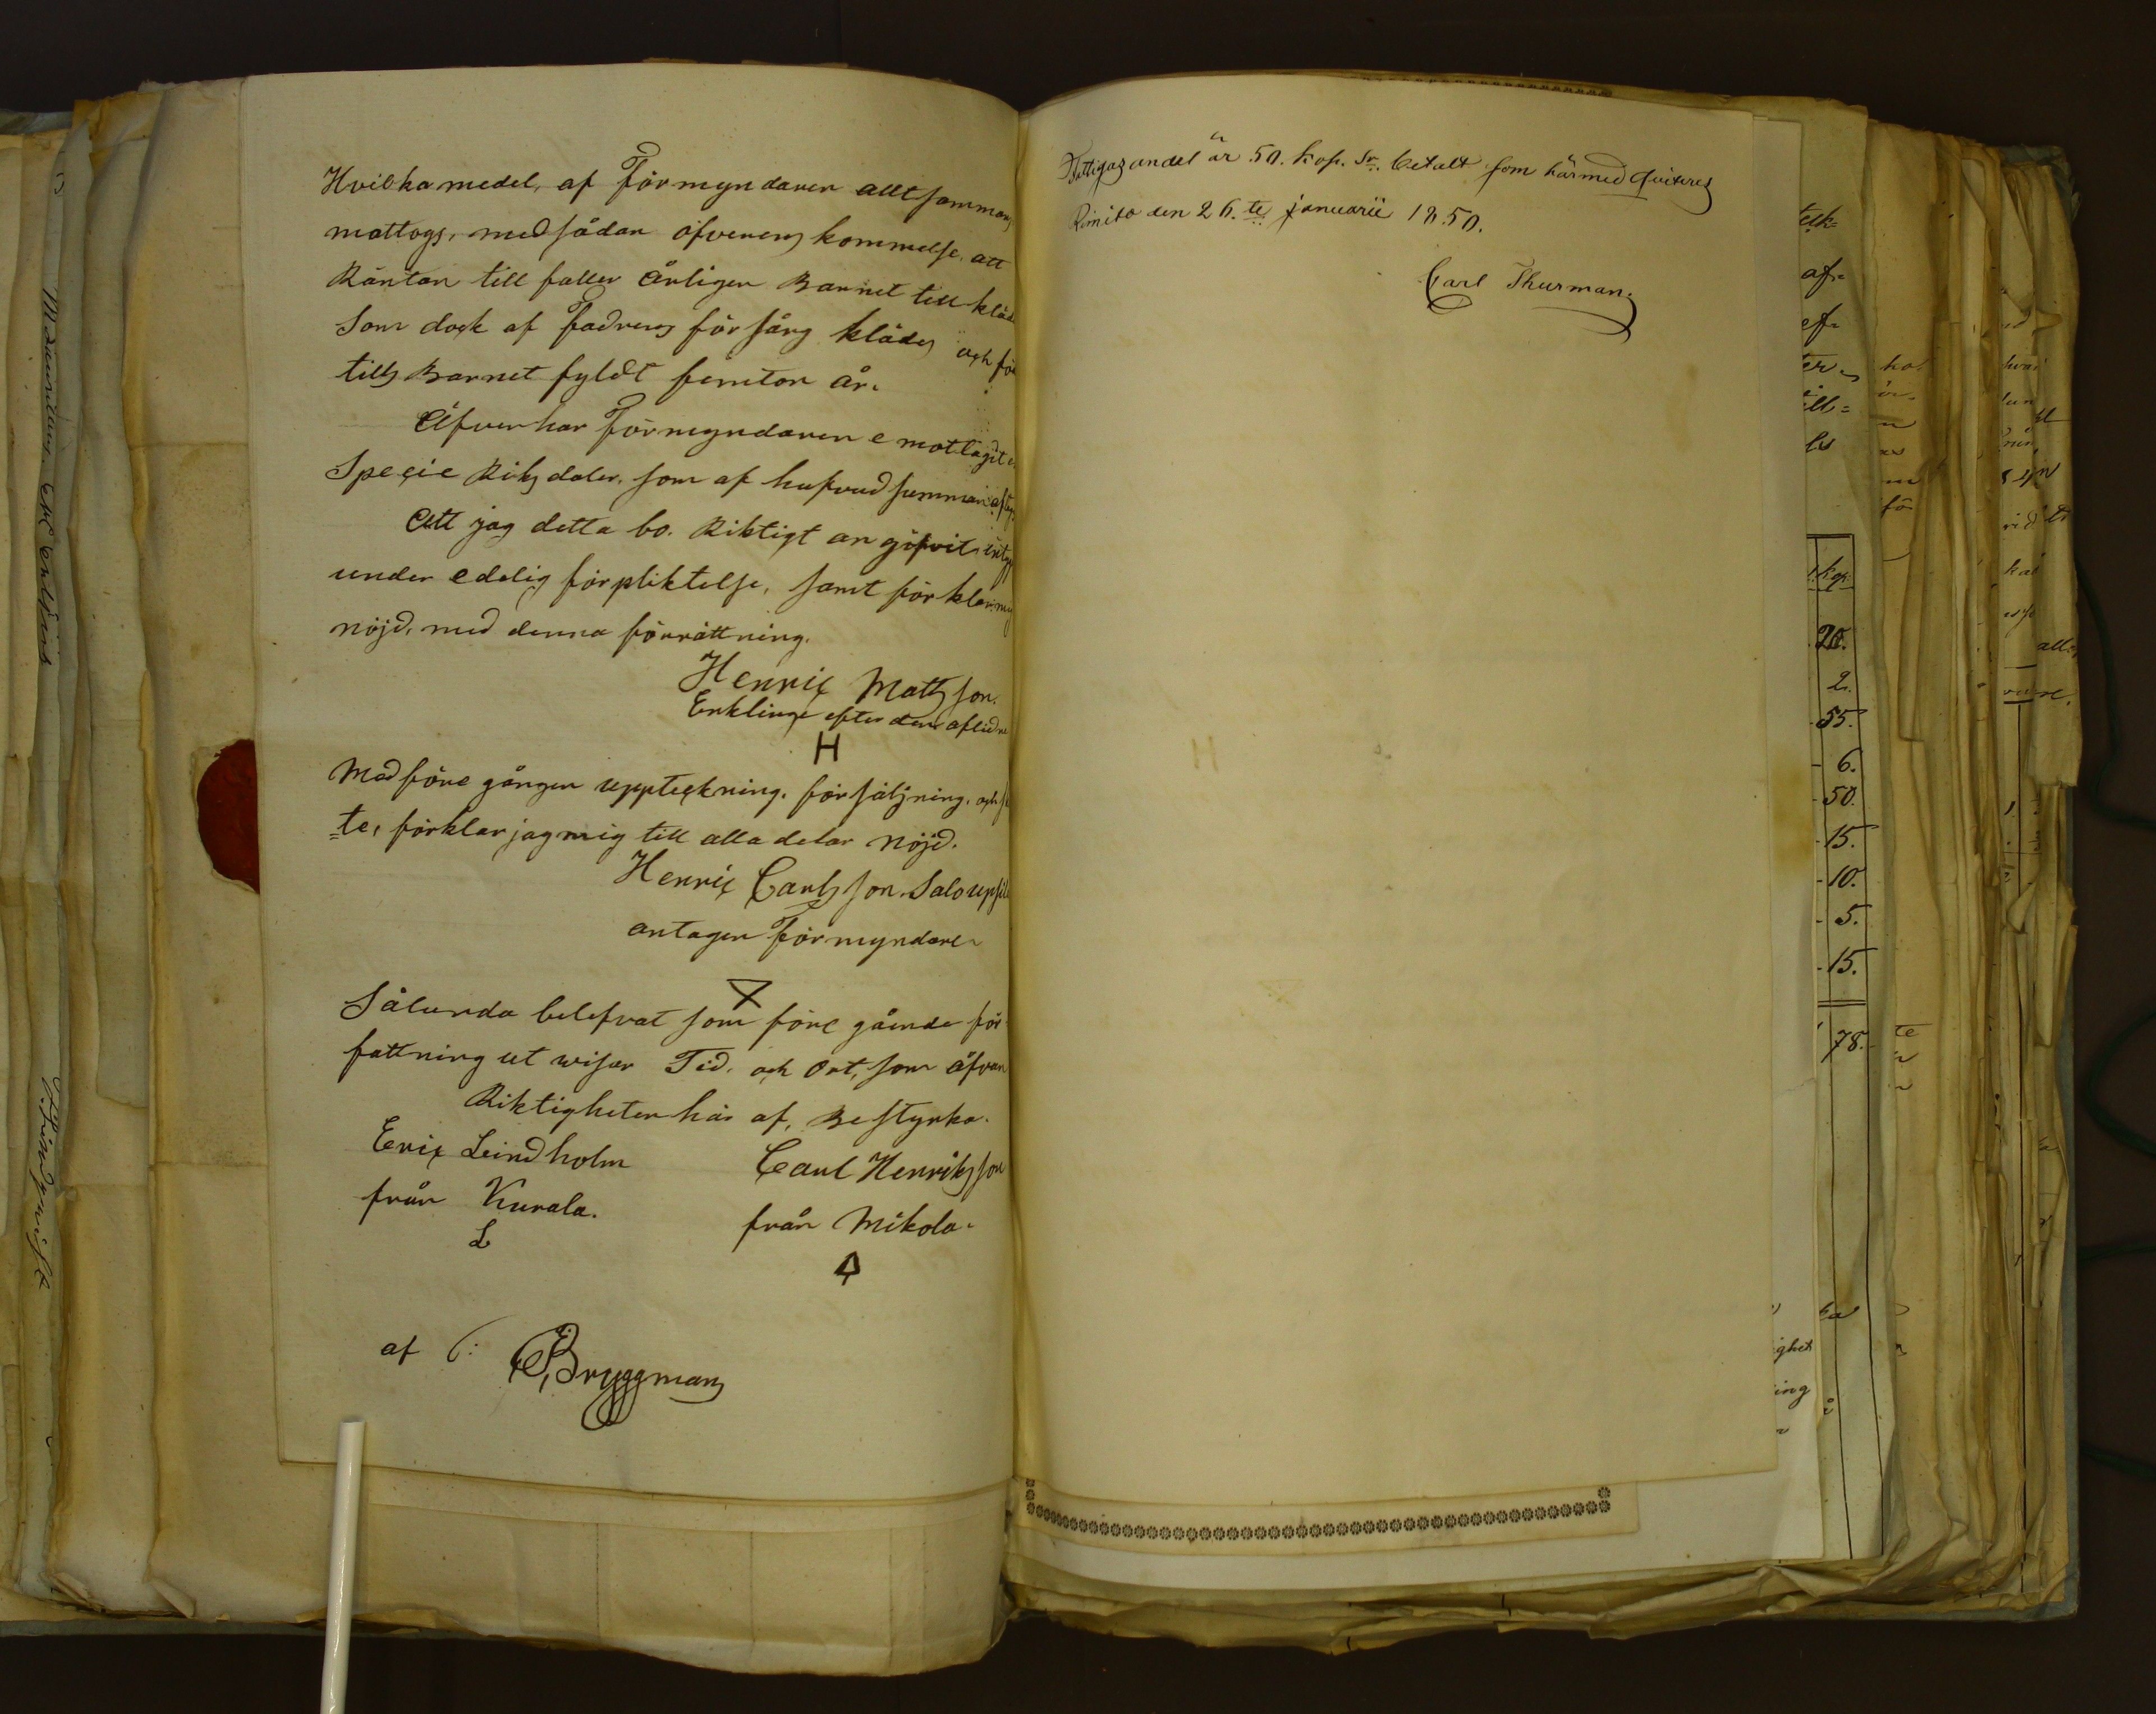 Hvilka medel, af Förmyndaren allt sammans
mottogs, med sådan öfverens kommelse, att
Räntan till faller Årligen Barnet till kläd
Som dock af Fadrens försårg klädes och fö
tills Barnet fyldt femton år.
Äfven har Förmyndaren e mottagit e
Speçie Riksdaler, som af hufvud summan aftag
Att jag detta bo. Riktigt an gifvit, intyg
under edelig förpliktelse, samt förklar mig
nöjd, med denna förrättning.
Henric Mattsson.
Enklinge efter den aflidne
H
Med före gången uppteckning, försäljning, och s
=te, förklar jag mig till alla delar nöjd.
Henric Carlsson Salo upsil
antagen Förmyndare
Sålunda belefvat som före gående för
fattning ut wisar Tid, och Ort, som åfvan
Riktigheten här af, Bestyrka.
Eric Leindholm Carl Henriksson
från Kurala. från Mikola.
L
af C: E, Bryggman
Fattigas andel är 50. kop. Sr. betalt som härmed qviteras
Rimito den 26.te januarii 1850.
Carl Thurman.
tek=
af=
ef=
ter
ill=
kop:
20.
2.
55.
6.
50.
15.
10.
5.
15.
78.
ighet
ing